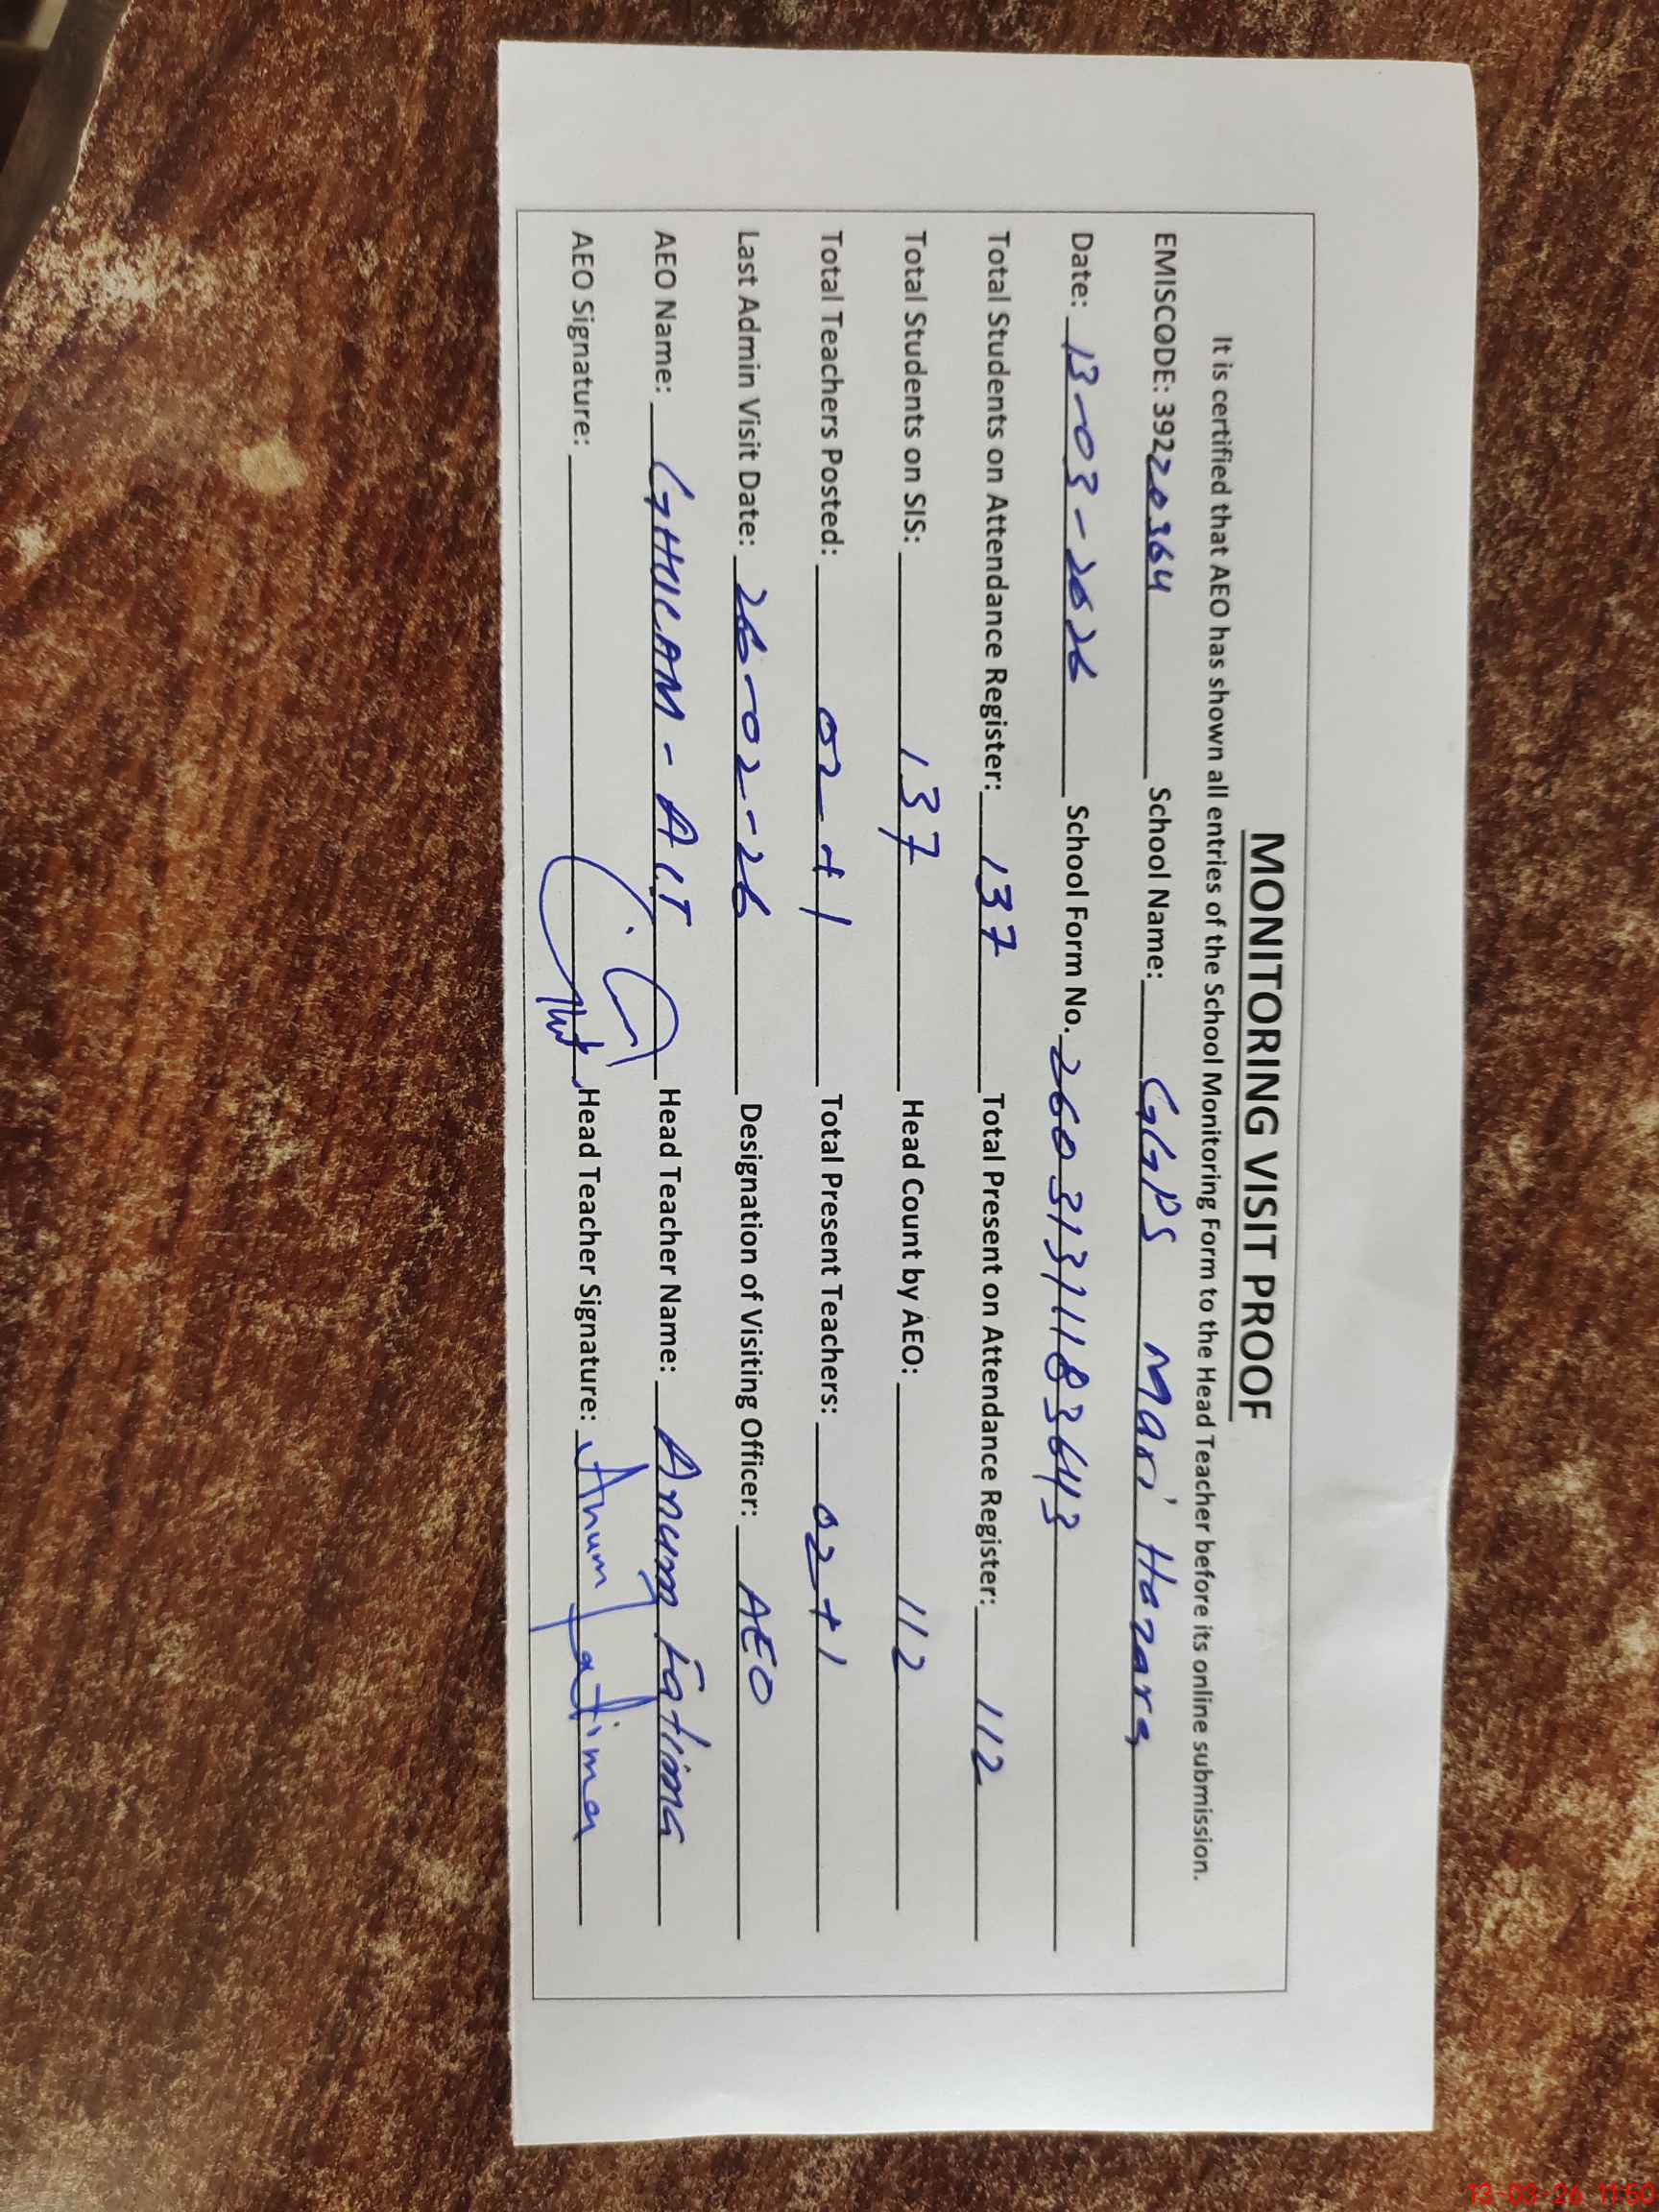 MONITORING VISIT PROOF
It is certified that AEO has shown all entries of the School Monitoring Form to the Head Teacher before its online submission.
EMISCODE: 39220364 School Name: GGPS Mari Hazara
Date: 13-03-2026 School Form No. 2603131118364 3
Total Students on Attendance Register: 137 Total Present on Attendance Register: 112
Total Students on SIS: 137 Head Count by AEO: 112
Total Teachers Posted: 02+1 Total Present Teachers: 02+1
Last Admin Visit Date: 26-02-26 Designation of Visiting Officer: AEO
AEO Name: GHULAM-ALI Head Teacher Name: Anum Fatima
AEO Signature: Head Teacher Signature: Anum Fatima
13-03-26 11:50